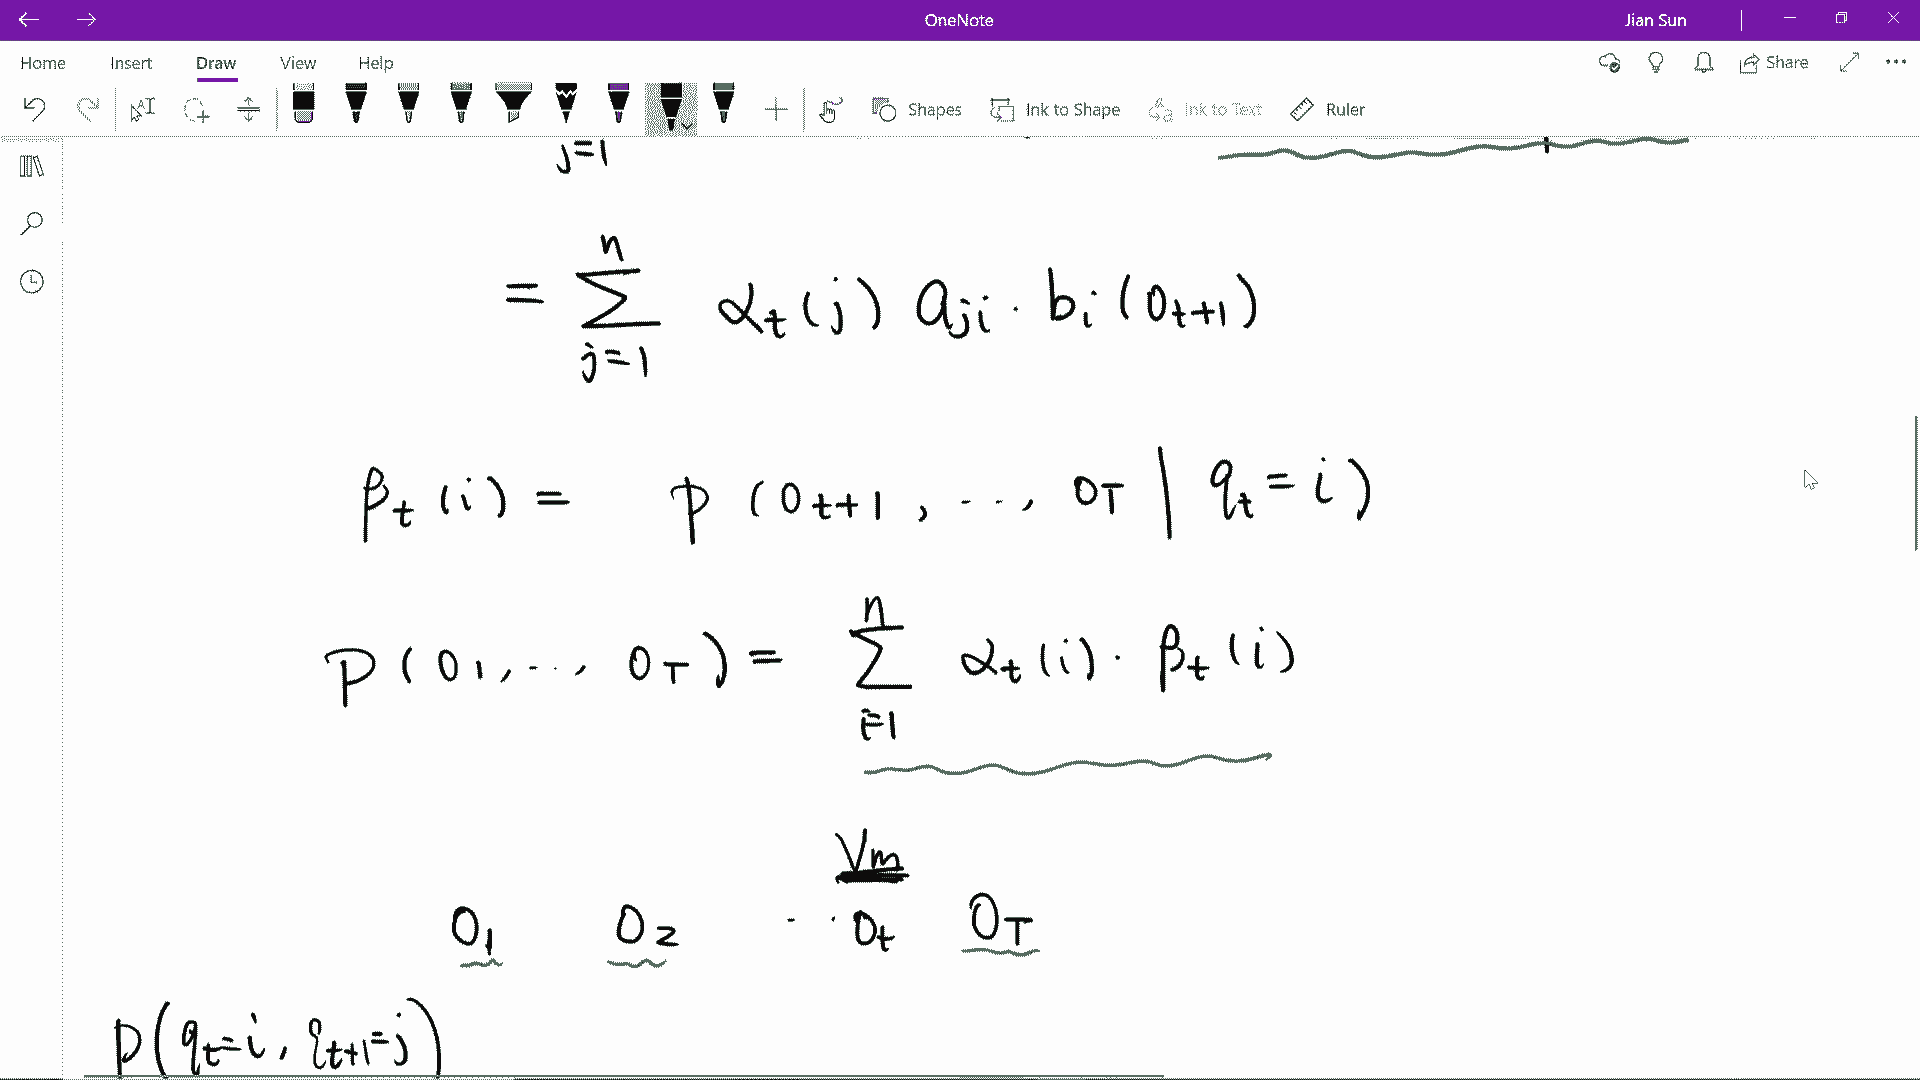 OneNote
Jian Sun
Home Insert Draw View Help
Share
Shapes Ink to Shape Ink to Text Ruler
j=1
= ∑_{j=1}^{n} α_t(j) a_{ji} · b_i(O_{t+1})
β_t(i) = P(O_{t+1}, ..., O_T | q_t = i)
P(O_1, ..., O_T) = ∑_{i=1}^{n} α_t(i) · β_t(i)
V_m
O_1 O_2 ... O_t O_T
P(q_t=i, q_{t+1}=j)